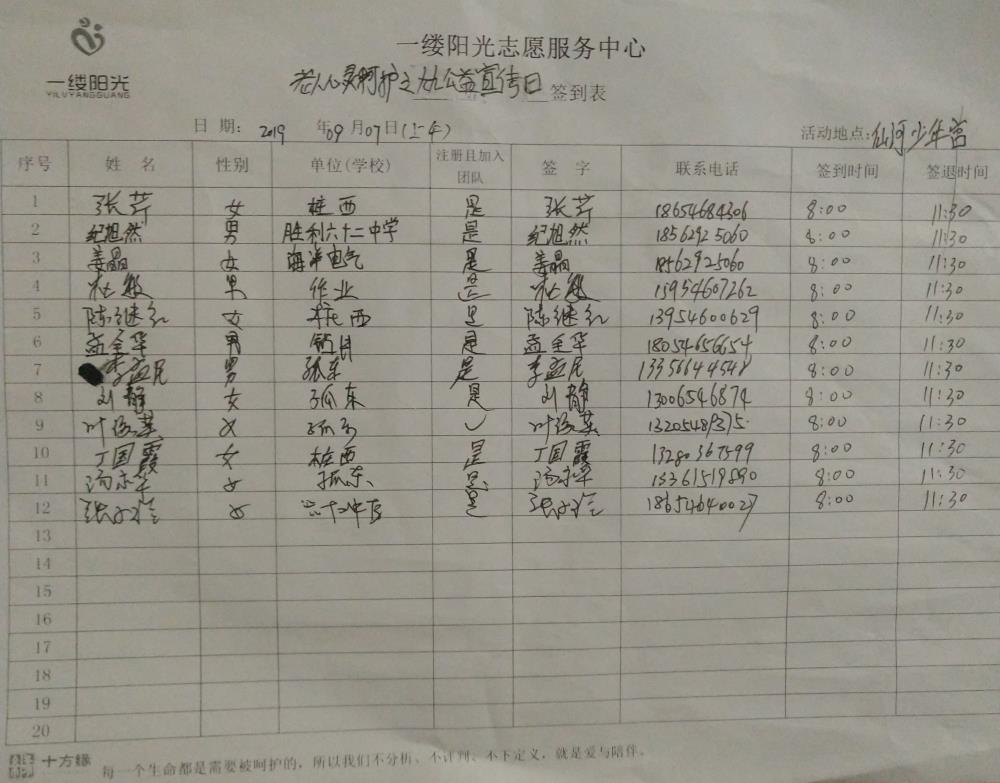 一缕阳光
YILUYANGGUANG
一缕阳光志愿服务中心
老人心灵呵护之九九公益宣传日 签到表
日 期: 2019 年 09 月 07 日(上午) 活动地点: 仙河少年宫
序号 姓 名 性别 单位(学校) 注册且加入团队 签 字 联系电话 签到时间 签退时间
1 张芹 女 桩西 是 张芹 18654684306 8:00 11:30
2 纪旭然 男 胜利六十二中学 是 纪旭然 18562925060 8:00 11:30
3 姜晶 女 海洋电气 是 姜晶 18562925060 8:00 11:30
4 杜敏 男 作业 是 杜敏 15954607262 8:00 11:30
5 陈继红 女 桩西 是 陈继红 13954600629 8:00 11:30
6 孟全华 男 是 孟全华 18054656654 8:00 11:30
7 李孟尼 男 孤东 是 李孟尼 13356644548 8:00 11:30
8 刘静 女 孤东 是 刘静 13006546874 8:00 11:30
9 女 孤东 ✓ 8:00 11:30
10 丁国霞 女 桩西 是 丁国霞 13280367599 8:00 11:30
11 女 孤东 是 8:00 11:30
12 女 是 18654640027 8:00 11:30
13
14
15
16
17
18
19
20
十方缘 每一个生命都是需要被呵护的，所以我们不分析、不评判、不下定义，就是爱与陪伴。